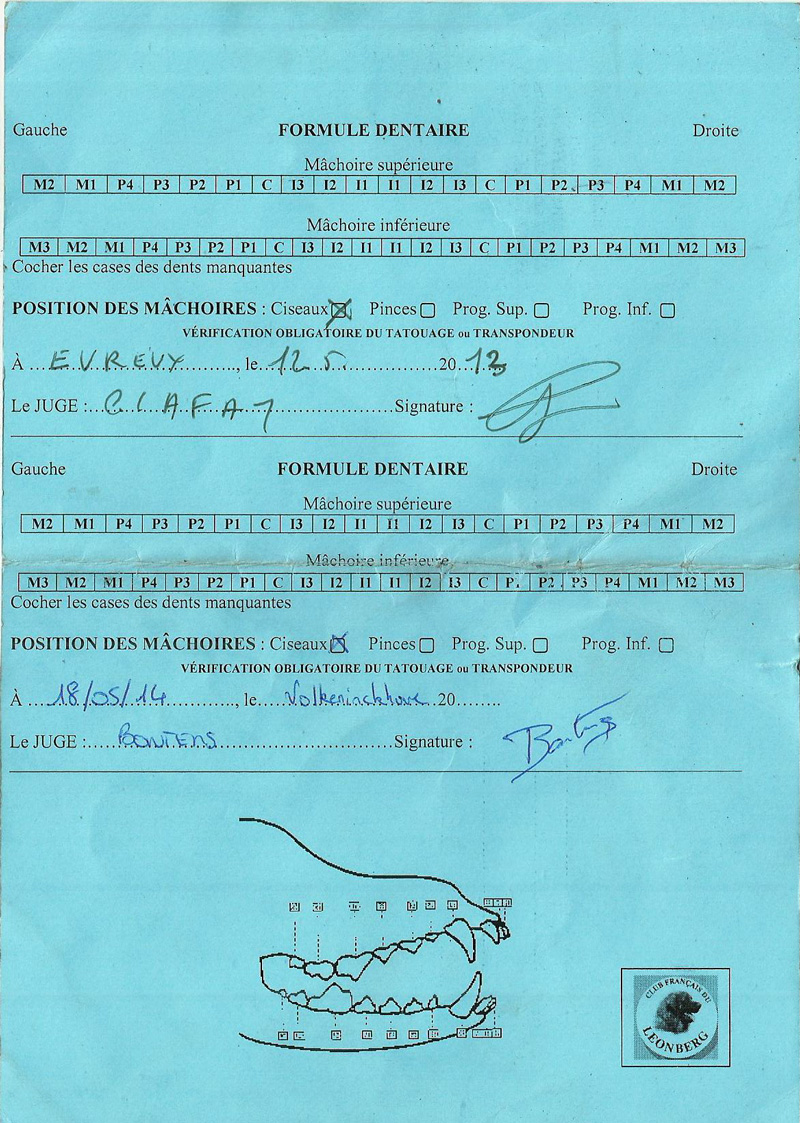 Gauche FORMULE DENTAIRE Droite
Mâchoire supérieure
M2 M1 P4 P3 P2 P1 C I3 I2 I1 I1 I2 I3 C P1 P2 P3 P4 M1 M2
Mâchoire inférieure
M3 M2 M1 P4 P3 P2 P1 C I3 I2 I1 I1 I2 I3 C P1 P2 P3 P4 M1 M2 M3
Cocher les cases des dents manquantes
POSITION DES MÂCHOIRES : Ciseaux Pinces Prog. Sup. Prog. Inf.
VÉRIFICATION OBLIGATOIRE DU TATOUAGE ou TRANSPONDEUR
À ... EVREUX ..., le 12 5. ... 20 13
Le JUGE : ... Signature :
Gauche FORMULE DENTAIRE Droite
Mâchoire supérieure
M2 M1 P4 P3 P2 P1 C I3 I2 I1 I1 I2 I3 C P1 P2 P3 P4 M1 M2
Mâchoire inférieure
M3 M2 M1 P4 P3 P2 P1 C I3 I2 I1 I1 I2 I3 C P1 P2 P3 P4 M1 M2 M3
Cocher les cases des dents manquantes
POSITION DES MÂCHOIRES : Ciseaux Pinces Prog. Sup. Prog. Inf.
VÉRIFICATION OBLIGATOIRE DU TATOUAGE ou TRANSPONDEUR
À ... 18/05/14 ..., le Volkerinckhove 20........
Le JUGE : ... BONTEMS ... Signature :
CLUB FRANÇAIS DU
LEONBERG